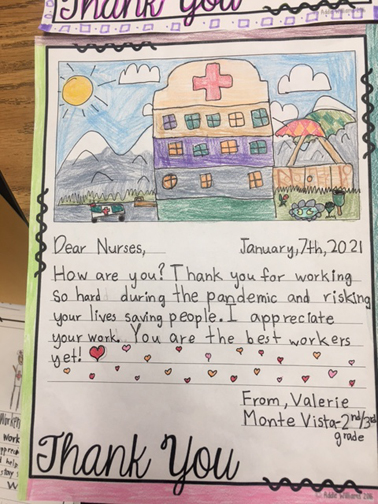 Thank You
Dear Nurses,
January, 7th, 2021
How are you? Thank you for working
so hard during the pandemic and risking
your lives saving people. I appreciate
your work. You are the best workers
yet!
From, Valerie
Monte Vista-2nd/3rd
grade
Thank You
© Addie Williams